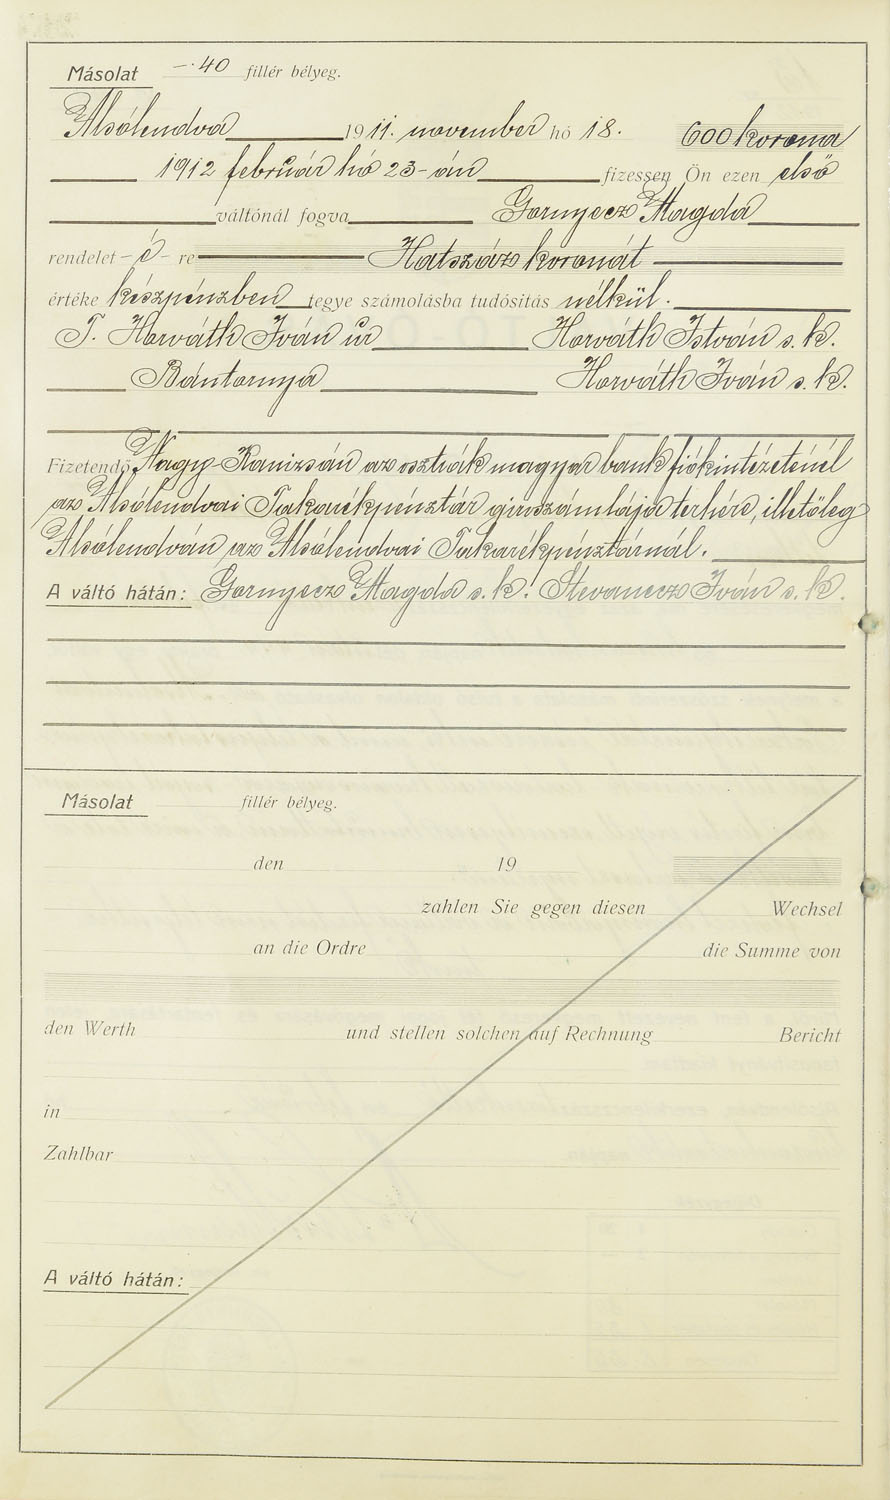 Másolat —·40 fillér bélyeg.
Alsólendva 1911. november hó 18. 600 korona
1912 február hó 23-án fizessen Ön ezen első
váltónál fogva Gornyecz Magda
rendelet-é-re Hatszáz koronát
értéke készpénzben tegye számolásba tudósitás nélkül.
T. Horváth Iván úr Horváth István s. k.
Bántornya Horváth Iván s. k.
Fizetendő Nagy-Kanizsán az osztrák magyar bank fiókintézeténél
az Alsólendvai Takarékpénztár giroszámlája terhére, illetőleg
Alsólendván az Alsólendvai Takarékpénztárnál.
A váltó hátán: Gornyecz Magda s. k. Stevanecz Iván s. k.
Másolat fillér bélyeg.
den 19
zahlen Sie gegen diesen Wechsel
an die Ordre die Summe von
den Werth und stellen solchen auf Rechnung Bericht
in
Zahlbar
A váltó hátán: